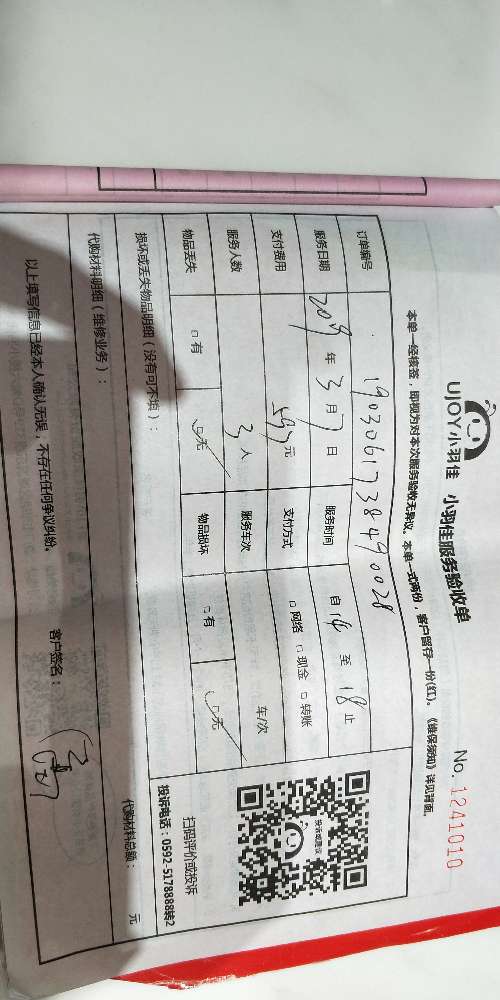 UJOY小羽佳 小羽佳服务验收单
No. 1241010
本单一经核签，即视为对本次服务验收无异议。本单一式两份，客户留存一份(红)。《维保须知》详见背面。
订单编号 1903061738490028
服务日期 2019年3月7日 服务时间 自14至18止
支付费用 593元 支付方式 □网络 □现金 □转账
服务人数 3人 服务车次 车/次
物品丢失 □有 □无 物品损坏 □有 □无
投诉或建议
扫码评价或投诉
投诉电话：0592-5178888转2
损坏或丢失物品明细（没有可不填）：
代购材料明细（维修业务）：
代购材料总额： 元
以上填写信息已经本人确认无误，不存在任何争议纠纷。 客户签名：